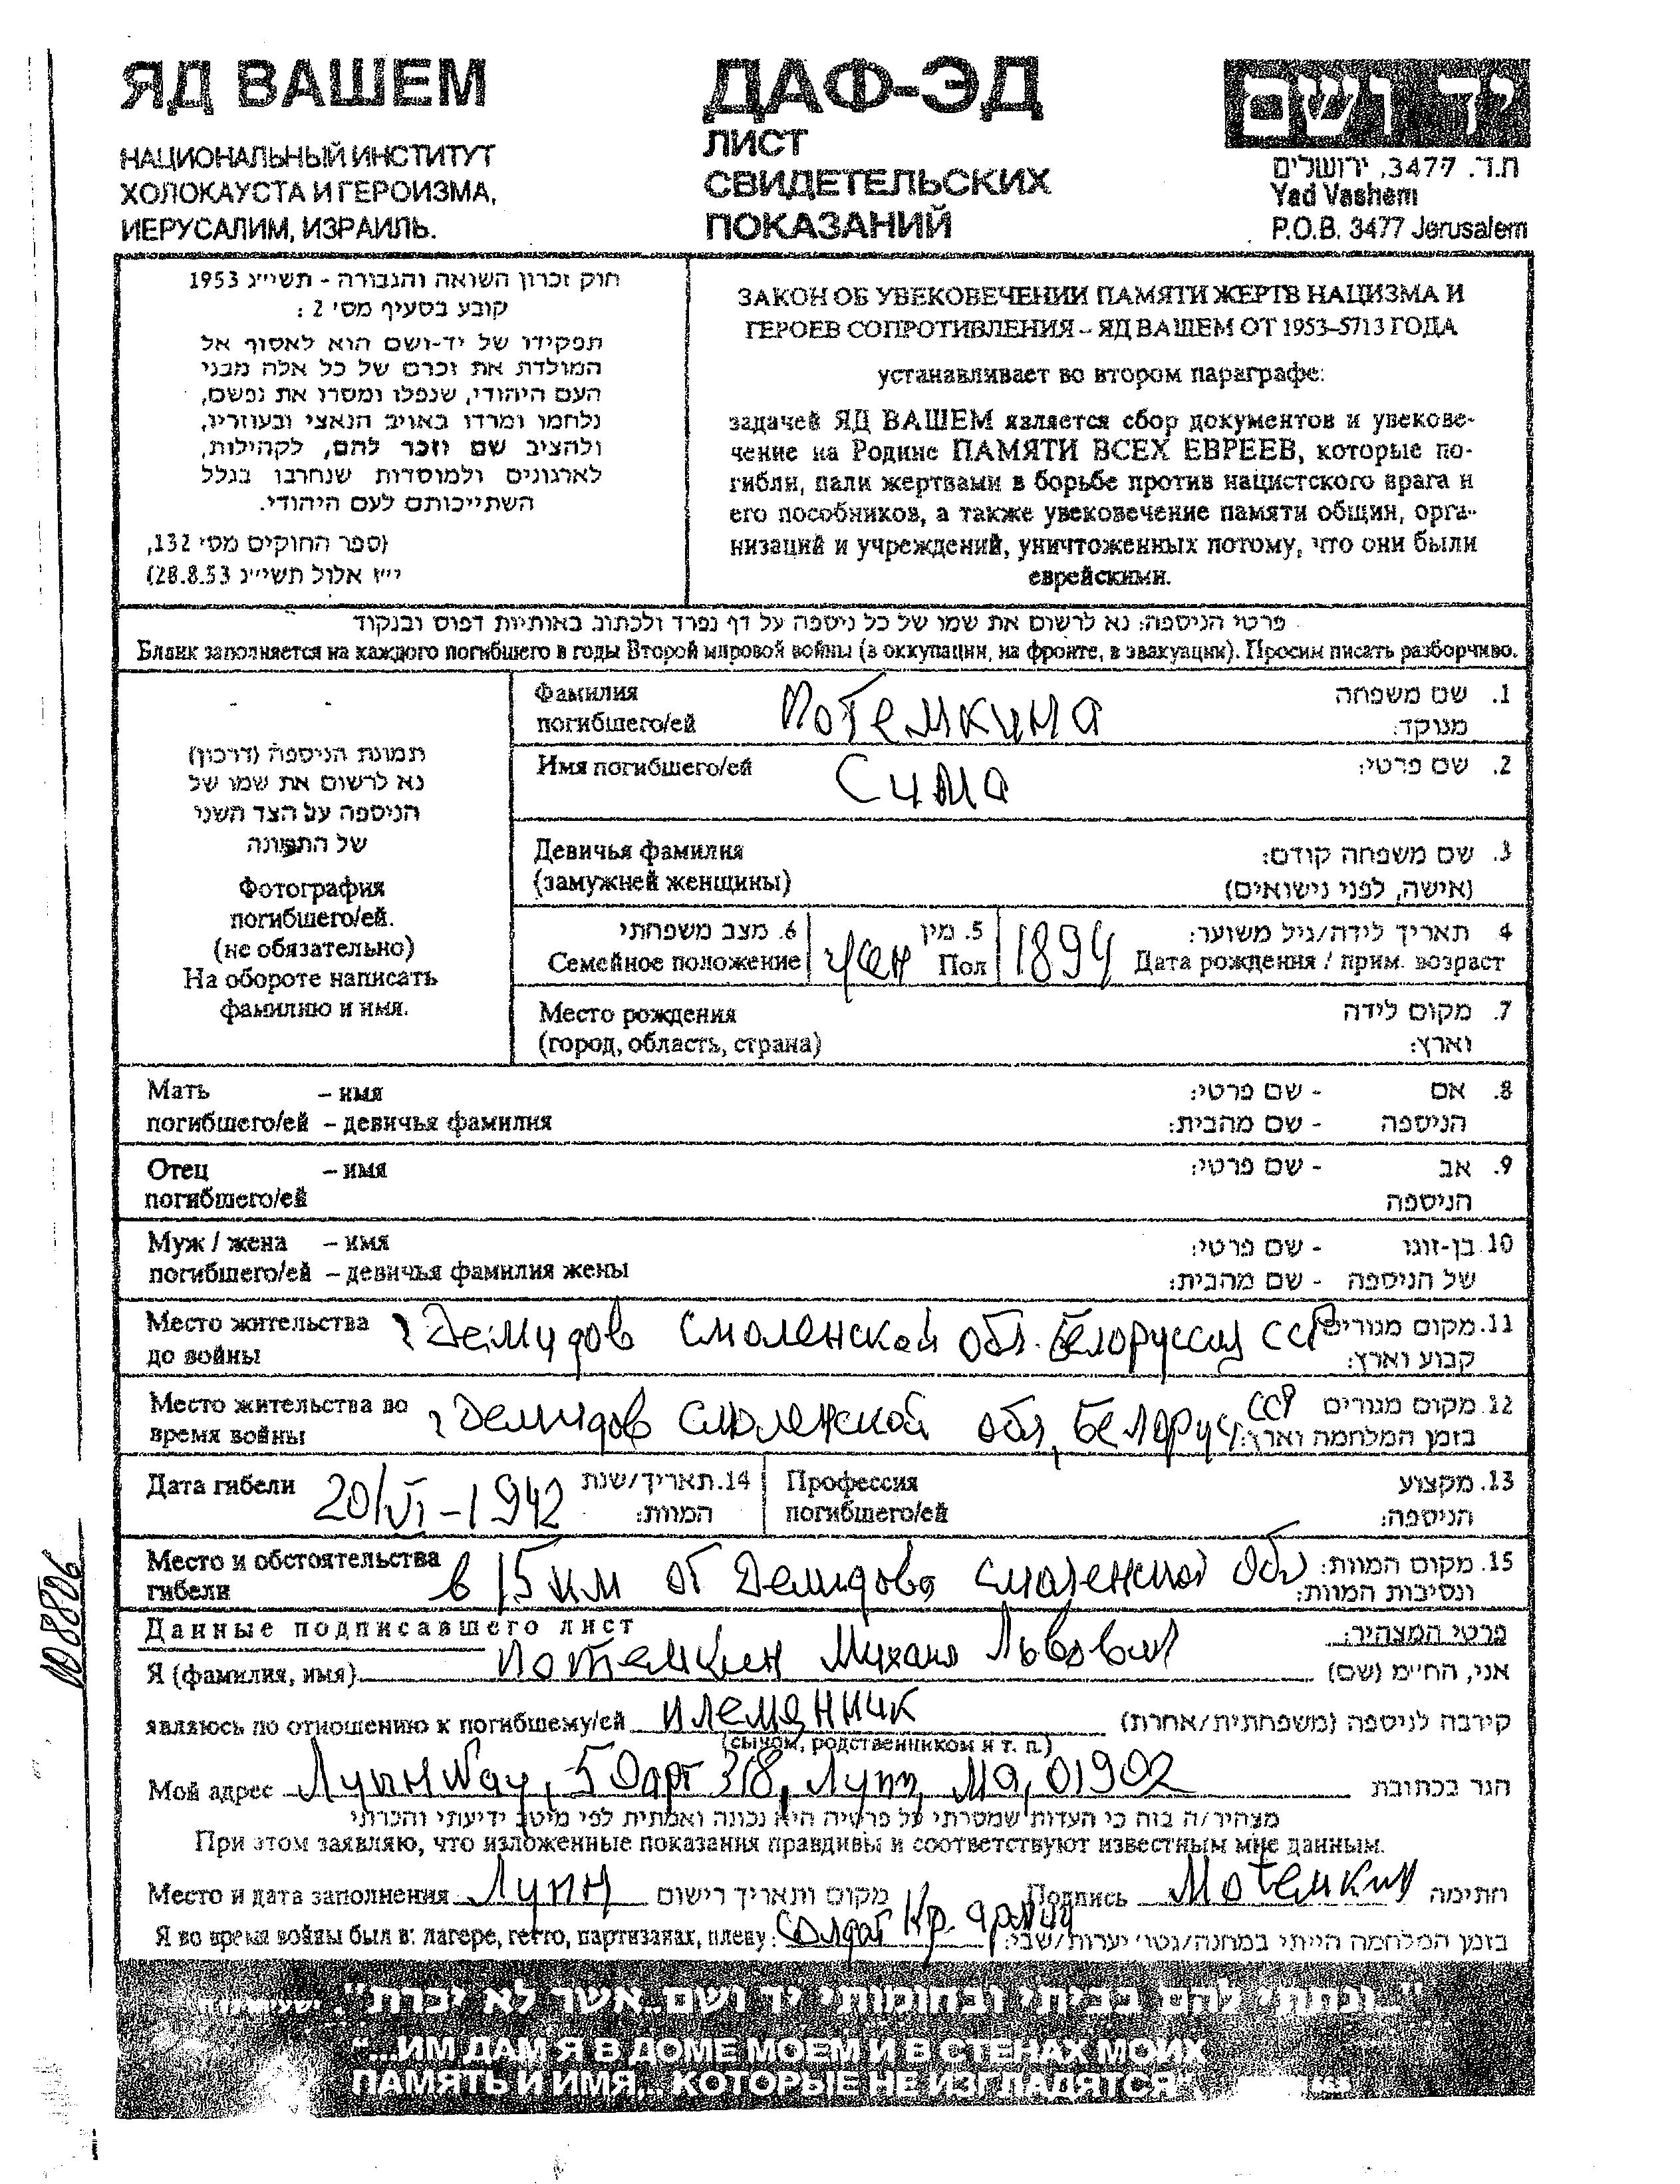 ЯД ВАШЕМ
НАЦИОНАЛЬНЫЙ ИНСТИТУТ
ХОЛОКАУСТА И ГЕРОИЗМА,
ИЕРУСАЛИМ, ИЗРАИЛЬ.
ДАФ-ЭД
ЛИСТ
СВИДЕТЕЛЬСКИХ
ПОКАЗАНИЙ
יד ושם
ת.ד. 3477, ירושלים
Yad Vashem
P.O.B. 3477 Jerusalem
חוק זכרון השואה והגבורה - תשי״ג 1953
קובע בסעיף מס׳ 2 :
תפקידו של יד-ושם הוא לאסוף אל
המולדת את זכרם של כל אלה מבני
העם היהודי, שנפלו ומסרו את נפשם,
נלחמו ומרדו באויב הנאצי ובעוזריו,
ולהציב שם וזכר להם, לקהילות,
לארגונים ולמוסדות שנחרבו בגלל
השתייכותם לעם היהודי.
(ספר החוקים מס׳ 132,
י״ז אלול תשי״ג 28.8.53)
ЗАКОН ОБ УВЕКОВЕЧЕНИИ ПАМЯТИ ЖЕРТВ НАЦИЗМА И
ГЕРОЕВ СОПРОТИВЛЕНИЯ – ЯД ВАШЕМ ОТ 1953–5713 ГОДА
устанавливает во втором параграфе:
задачей ЯД ВАШЕМ является сбор документов и увекове-
чение на Родине ПАМЯТИ ВСЕХ ЕВРЕЕВ, которые по-
гибли, пали жертвами в борьбе против нацистского врага и
его пособников, а также увековечение памяти общин, орга-
низаций и учреждений, уничтоженных потому, что они были
еврейскими.
פרטי הניספה: נא לרשום את שמו של כל ניספה על דף נפרד ולכתוב באותיות דפוס ובנקוד
Бланк заполняется на каждого погибшего в годы Второй мировой войны (в оккупации, на фронте, в эвакуации). Просим писать разборчиво.
תמונת הניספה (דרכון)
נא לרשום את שמו של
הניספה על הצד השני
של התמונה
Фотография
погибшего/ей.
(не обязательно)
На обороте написать
фамилию и имя.
Фамилия Потемкина 1. שם משפחה
погибшего/ей מנוקד:
Имя погибшего/ей Сима 2. שם פרטי:
Девичья фамилия 3. שם משפחה קודם:
(замужней женщины) (אישה, לפני נישואים)
6. מצב משפחתי 5. מין 4 תאריך לידה/גיל משוער:
Семейное положение жен Пол 1894 Дата рождения / прим. возраст
Место рождения 7. מקום לידה
(город, область, страна) וארץ:
Мать – имя 8. אם - שם פרטי:
погибшего/ей – девичья фамилия הניספה - שם מהבית:
Отец – имя 9. אב - שם פרטי:
погибшего/ей הניספה
Муж / жена – имя 10. בן-זוגו - שם פרטי:
погибшего/ей – девичья фамилия жены של הניספה - שם מהבית:
Место жительства г Демидов Смоленской обл. Белорусская ССР 11. מקום מגורים
до войны קבוע וארץ:
Место жительства во г Демидов Смоленской обл, Белорус ССР 12. מקום מגורים
время войны בזמן המלחמה וארץ:
Дата гибели 20/VI-1942 14. תאריך/שנת המוות: Профессия 13. מקצוע
погибшего/ей הניספה:
Место и обстоятельства в 15 км от Демидова Смоленской обл 15. מקום המוות:
гибели ונסיבות המוות:
Данные подписавшего лист פרטי המצהיר:
Я (фамилия, имя) Потемкин Михаил Львович אני, החי״מ (שם)
являюсь по отношению к погибшему/ей племянник קירבה לניספה (משפחתית/אחרת)
(сыном, родственником и т. п.)
Мой адрес Линн Way, 50 арт 318, Линн, Ма, 01902 הגר בכתובת
מצהיר/ה בזה כי העדות שמסרתי על פרטיה היא נכונה ואמתית לפי מיטב ידיעתי והכרתי
При этом заявляю, что изложенные показания правдивы и соответствуют известным мне данным.
Место и дата заполнения Линн מקום ותאריך רישום Подпись Потемкин חתימה
Я во время войны был в: лагере, гетто, партизанах, плену: Солдат Кр. армии בזמן המלחמה הייתי במחנה/גטו/יערות/שבי:
"...ונתתי להם בביתי ובחומותי יד ושם...אשר לא יכרת"
"...ИМ ДАМ Я В ДОМЕ МОЕМ И В СТЕНАХ МОИХ
ПАМЯТЬ И ИМЯ... КОТОРЫЕ НЕ ИЗГЛАДЯТСЯ"
008806